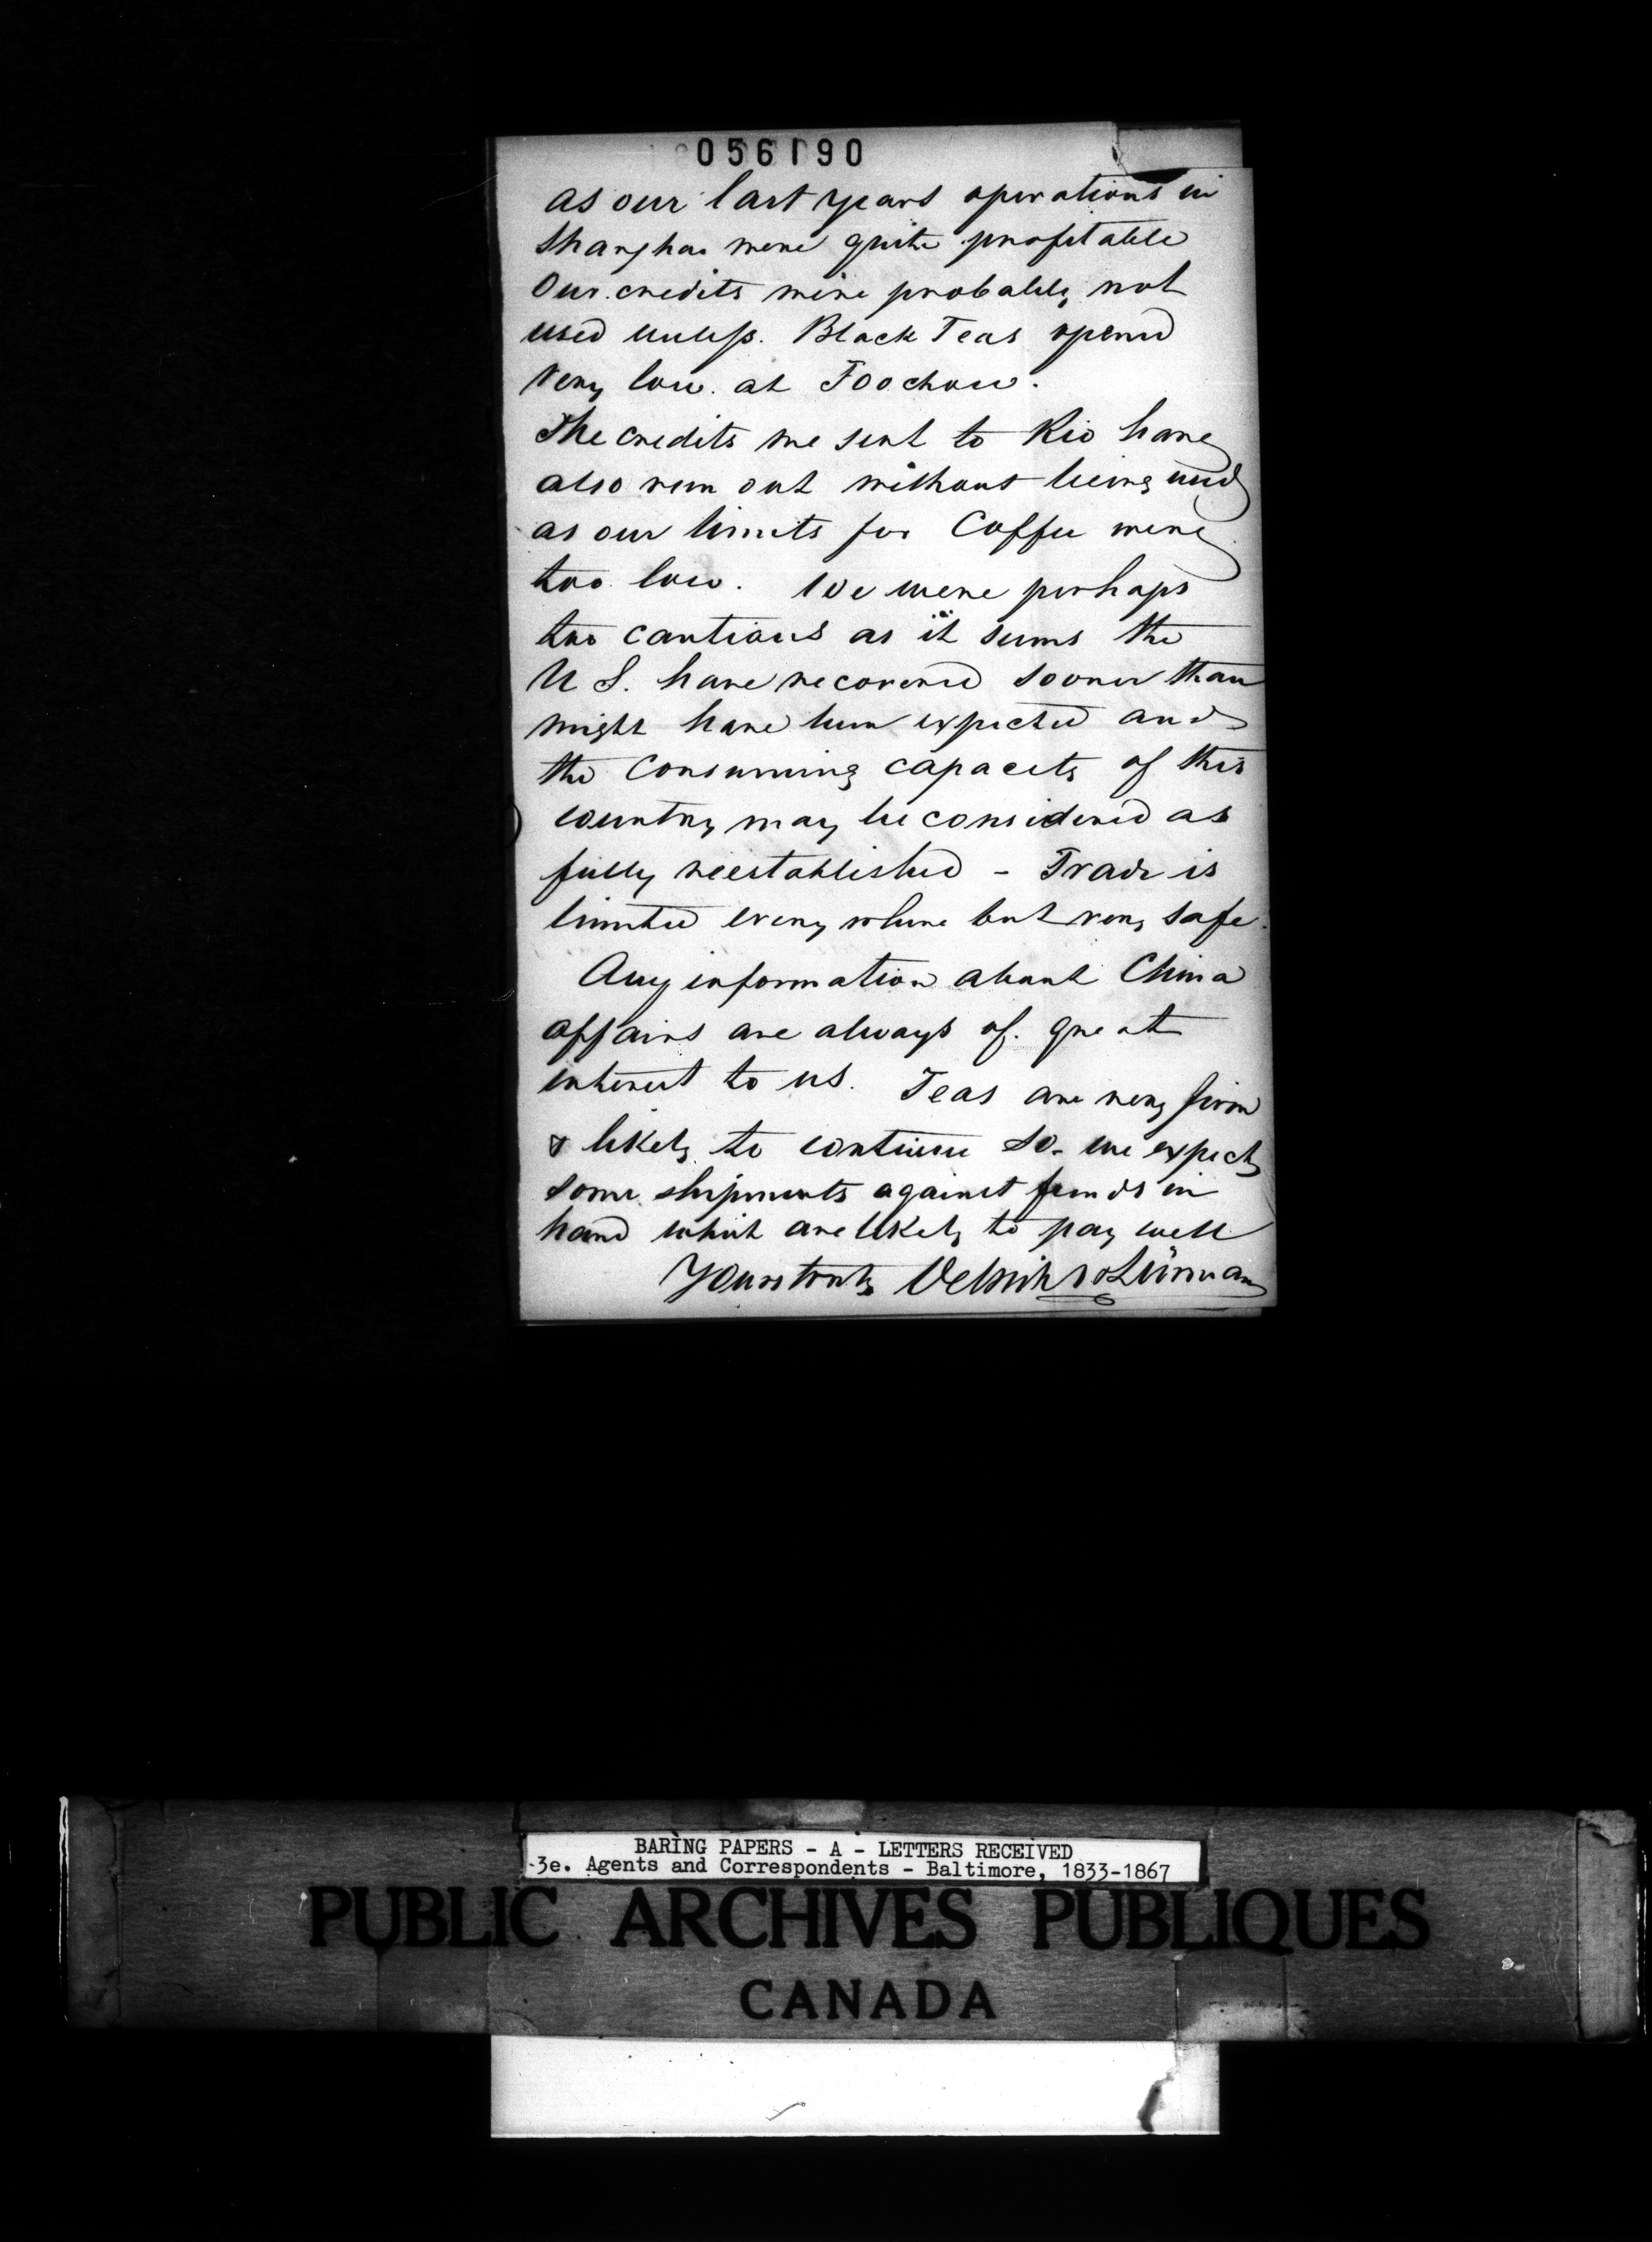 056190
as our last years operations in
Shanghai were quite profitable
Our credits were probably not
used unless Black Teas opened
very low at Foochow.
The credits we sent to Rio have
also run out without being used
as our limits for Coffee were
too low. We were perhaps
too cautious as it seems the
U S. have recovered sooner than
might have been expected and
the consuming capacity of this
country may be considered as
fully reestablished - Trade is
limited every where but very safe.
Any information about China
affairs are always of great
interest to us. Teas are very firm
& likely to continue so - we expect
some shipments against funds in
hand which are likely to pay well
Yours truly Oelrichs & Lürman
BARING PAPERS - A - LETTERS RECEIVED
3e. Agents and Correspondents - Baltimore, 1833-1867
PUBLIC ARCHIVES PUBLIQUES
CANADA